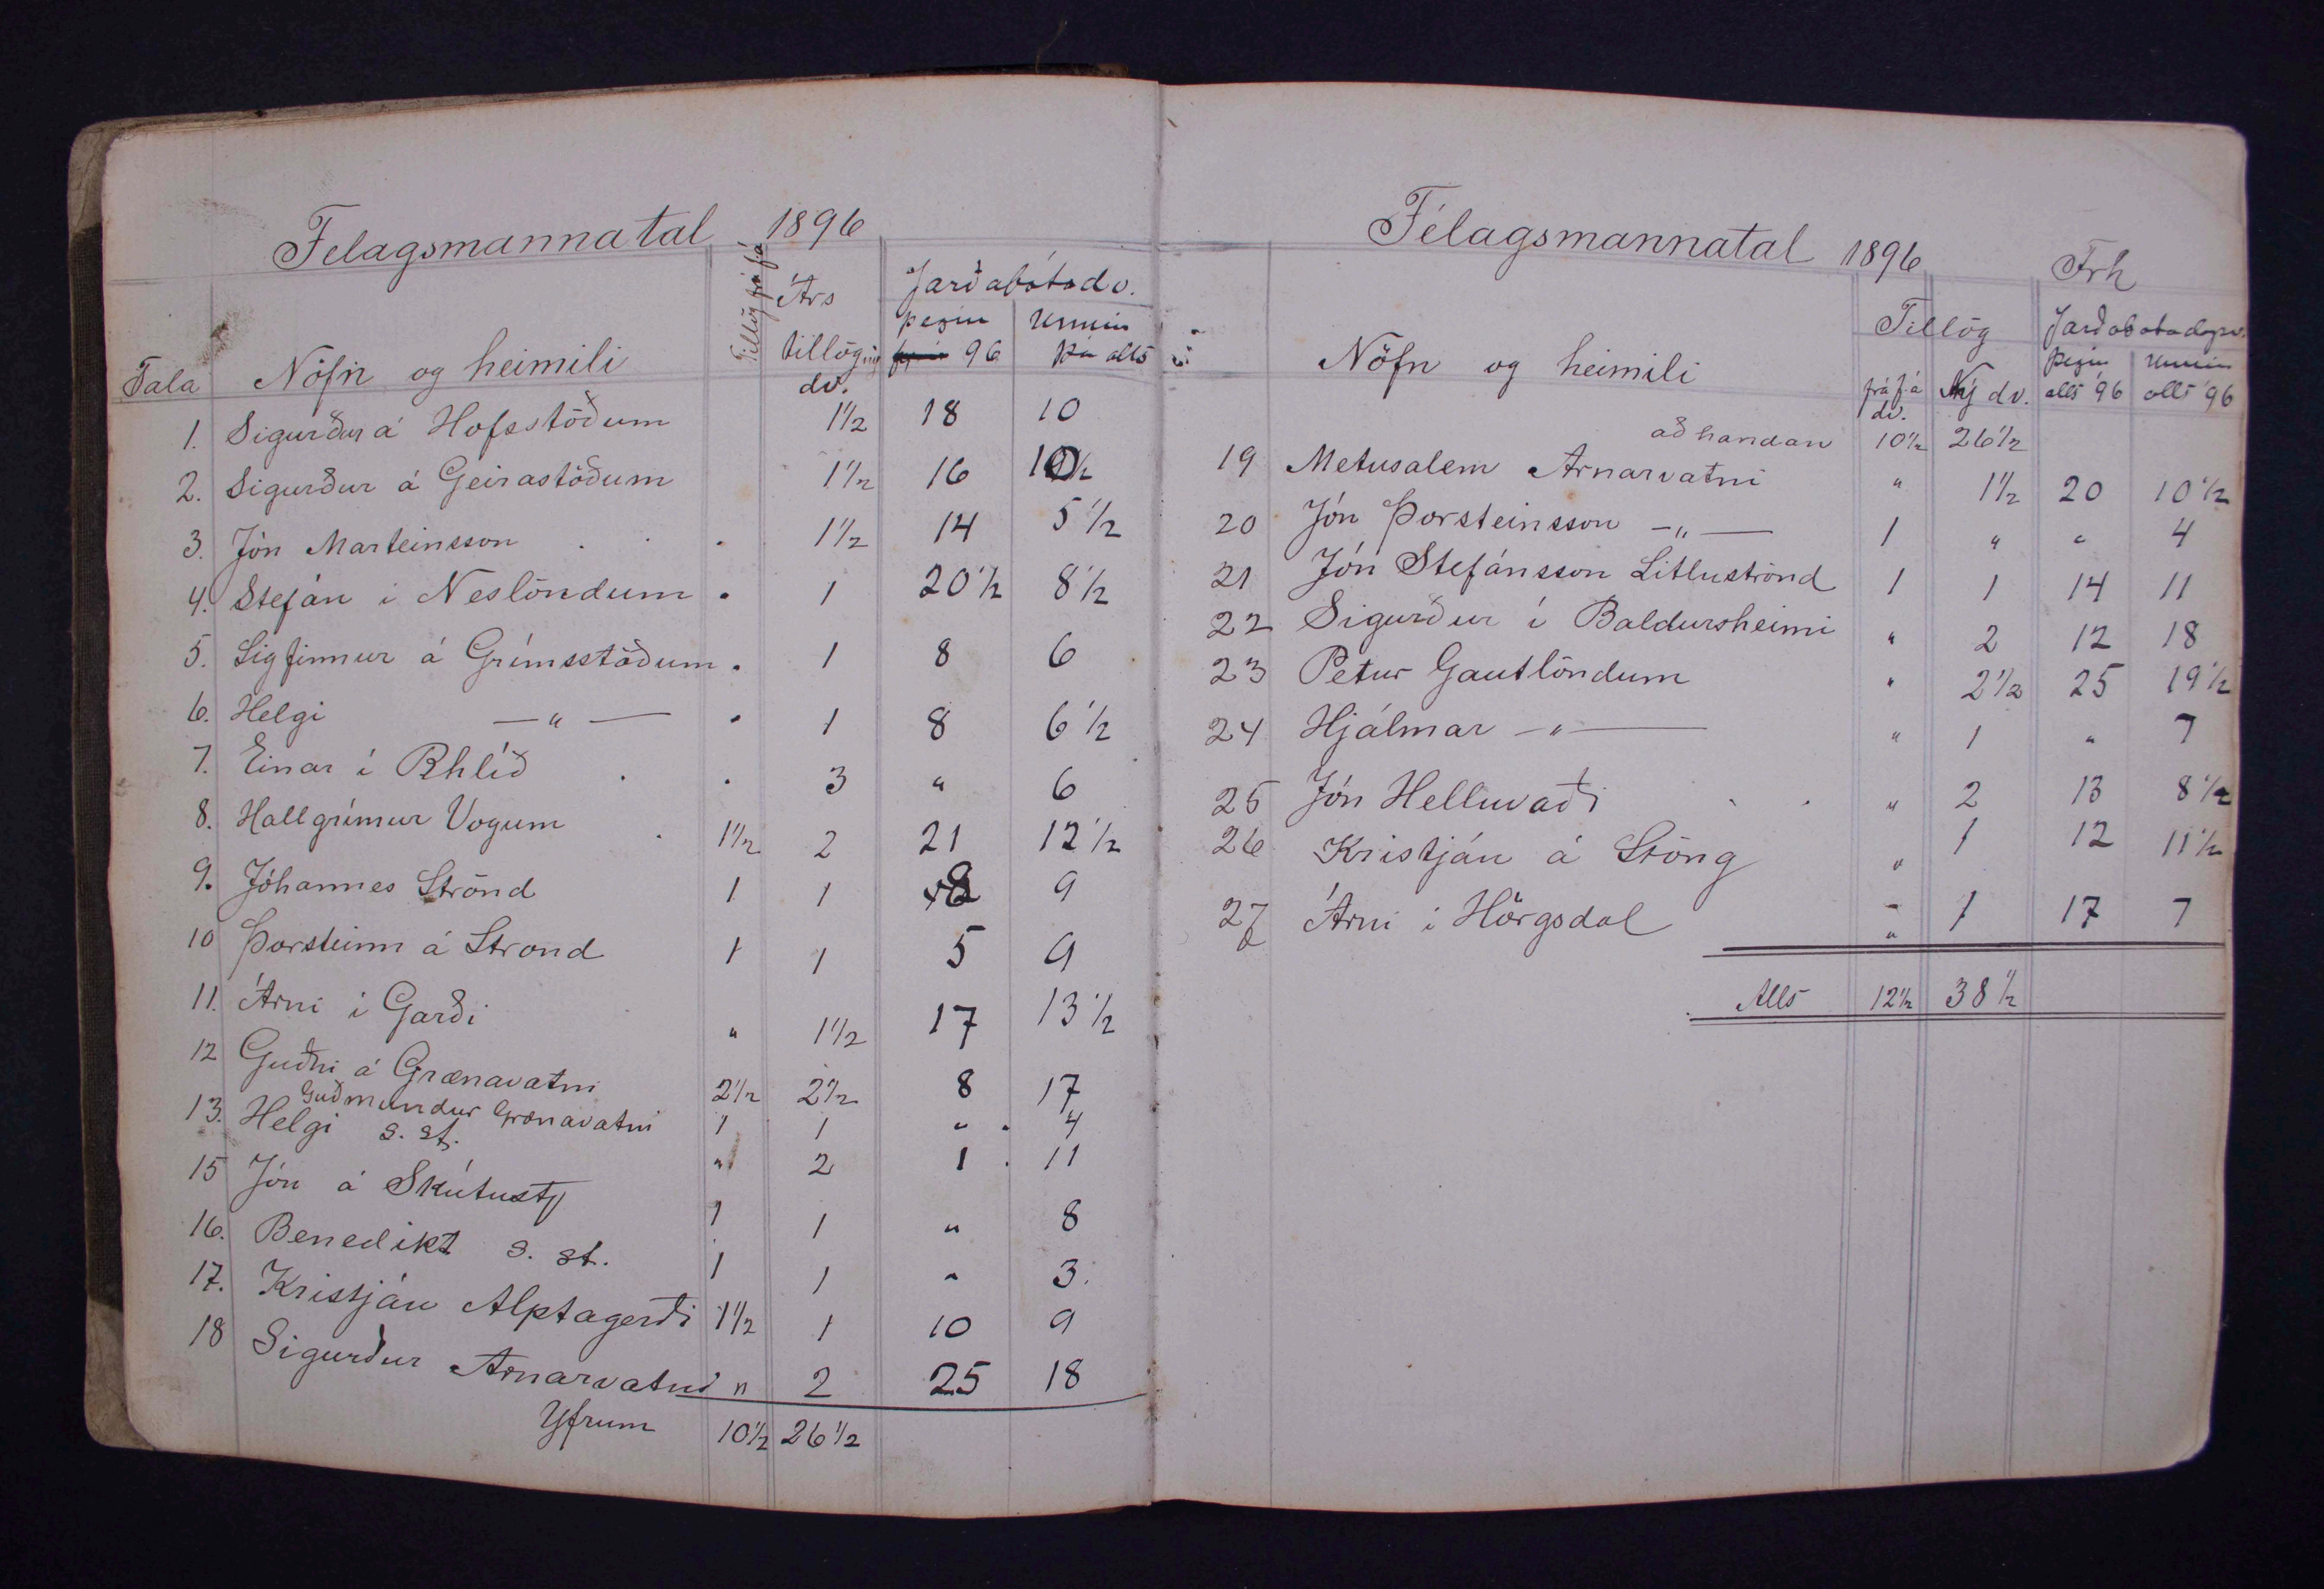 Felagsmannatal 1896
Tala Nöfn og heimili Tillög frá f á Árs tillög ný dv. Jarðabótadv.
þegin 96 Unnin þá alls
1. Sigurður á Hofsstöðum 1½ 18 10
2. Sigurður á Geirastöðum 1½ 16
3. Jón Marteinsson . . . 1½ 14 5½
4. Stefán i Neslöndum . 1 20½ 8½
5. Sigfinnur á Grímsstöðum . 1 8 6
6. Helgi — „ — . 1 8 6½
7. Einar í Rhlíð . . 3 „ 6
8. Hallgrímur Vogum . 1½ 2 21 12½
9. Jóhannes Strönd 1 1 8 9
10 Þorsteinn á Strond 1 1 5 9
11. Árni i Garði „ 1½ 17 13½
12 Guðni á Grænavatni 2½ 2½ 8 17
Guðmundur Grænavatni 1 1 „ . 4
13. Helgi s. st. „ 2 1 . 11
15 Jón á Skútust 1 1 „ 8
16. Benedikt s. st. 1 1 „ 3.
17. Kristján Alptagerði 1½ 1 10 9
18 Sigurður Arnarvatni „ 2 25 18
Yfrum 10½ 26½
Félagsmannatal 1896 Frh
Nöfn og heimili Tillög Jarðabotadagsv.
frá f á dv. Ný dv. þegin alls '96 unnin alls '96
að handan 10½ 26½
19 Metusalem Arnarvatni „ 1½ 20 10½
20 Jón Þorsteinsson — „ — 1 „ „ 4
21 Jón Stefánsson Litluströnd 1 1 14 11
22 Sigurður í Baldursheimi „ 2 12 18
23 Petur Gautlöndum „ 2½ 25 19½
24 Hjálmar — „ — „ 1 „ 7
25 Jón Helluvaði . . „ 2 13 8½
26 Kristján á Stöng „ 1 12 11½
27 Árni i Hörgsdal „ 1 17 7
Alls 12½ 38½